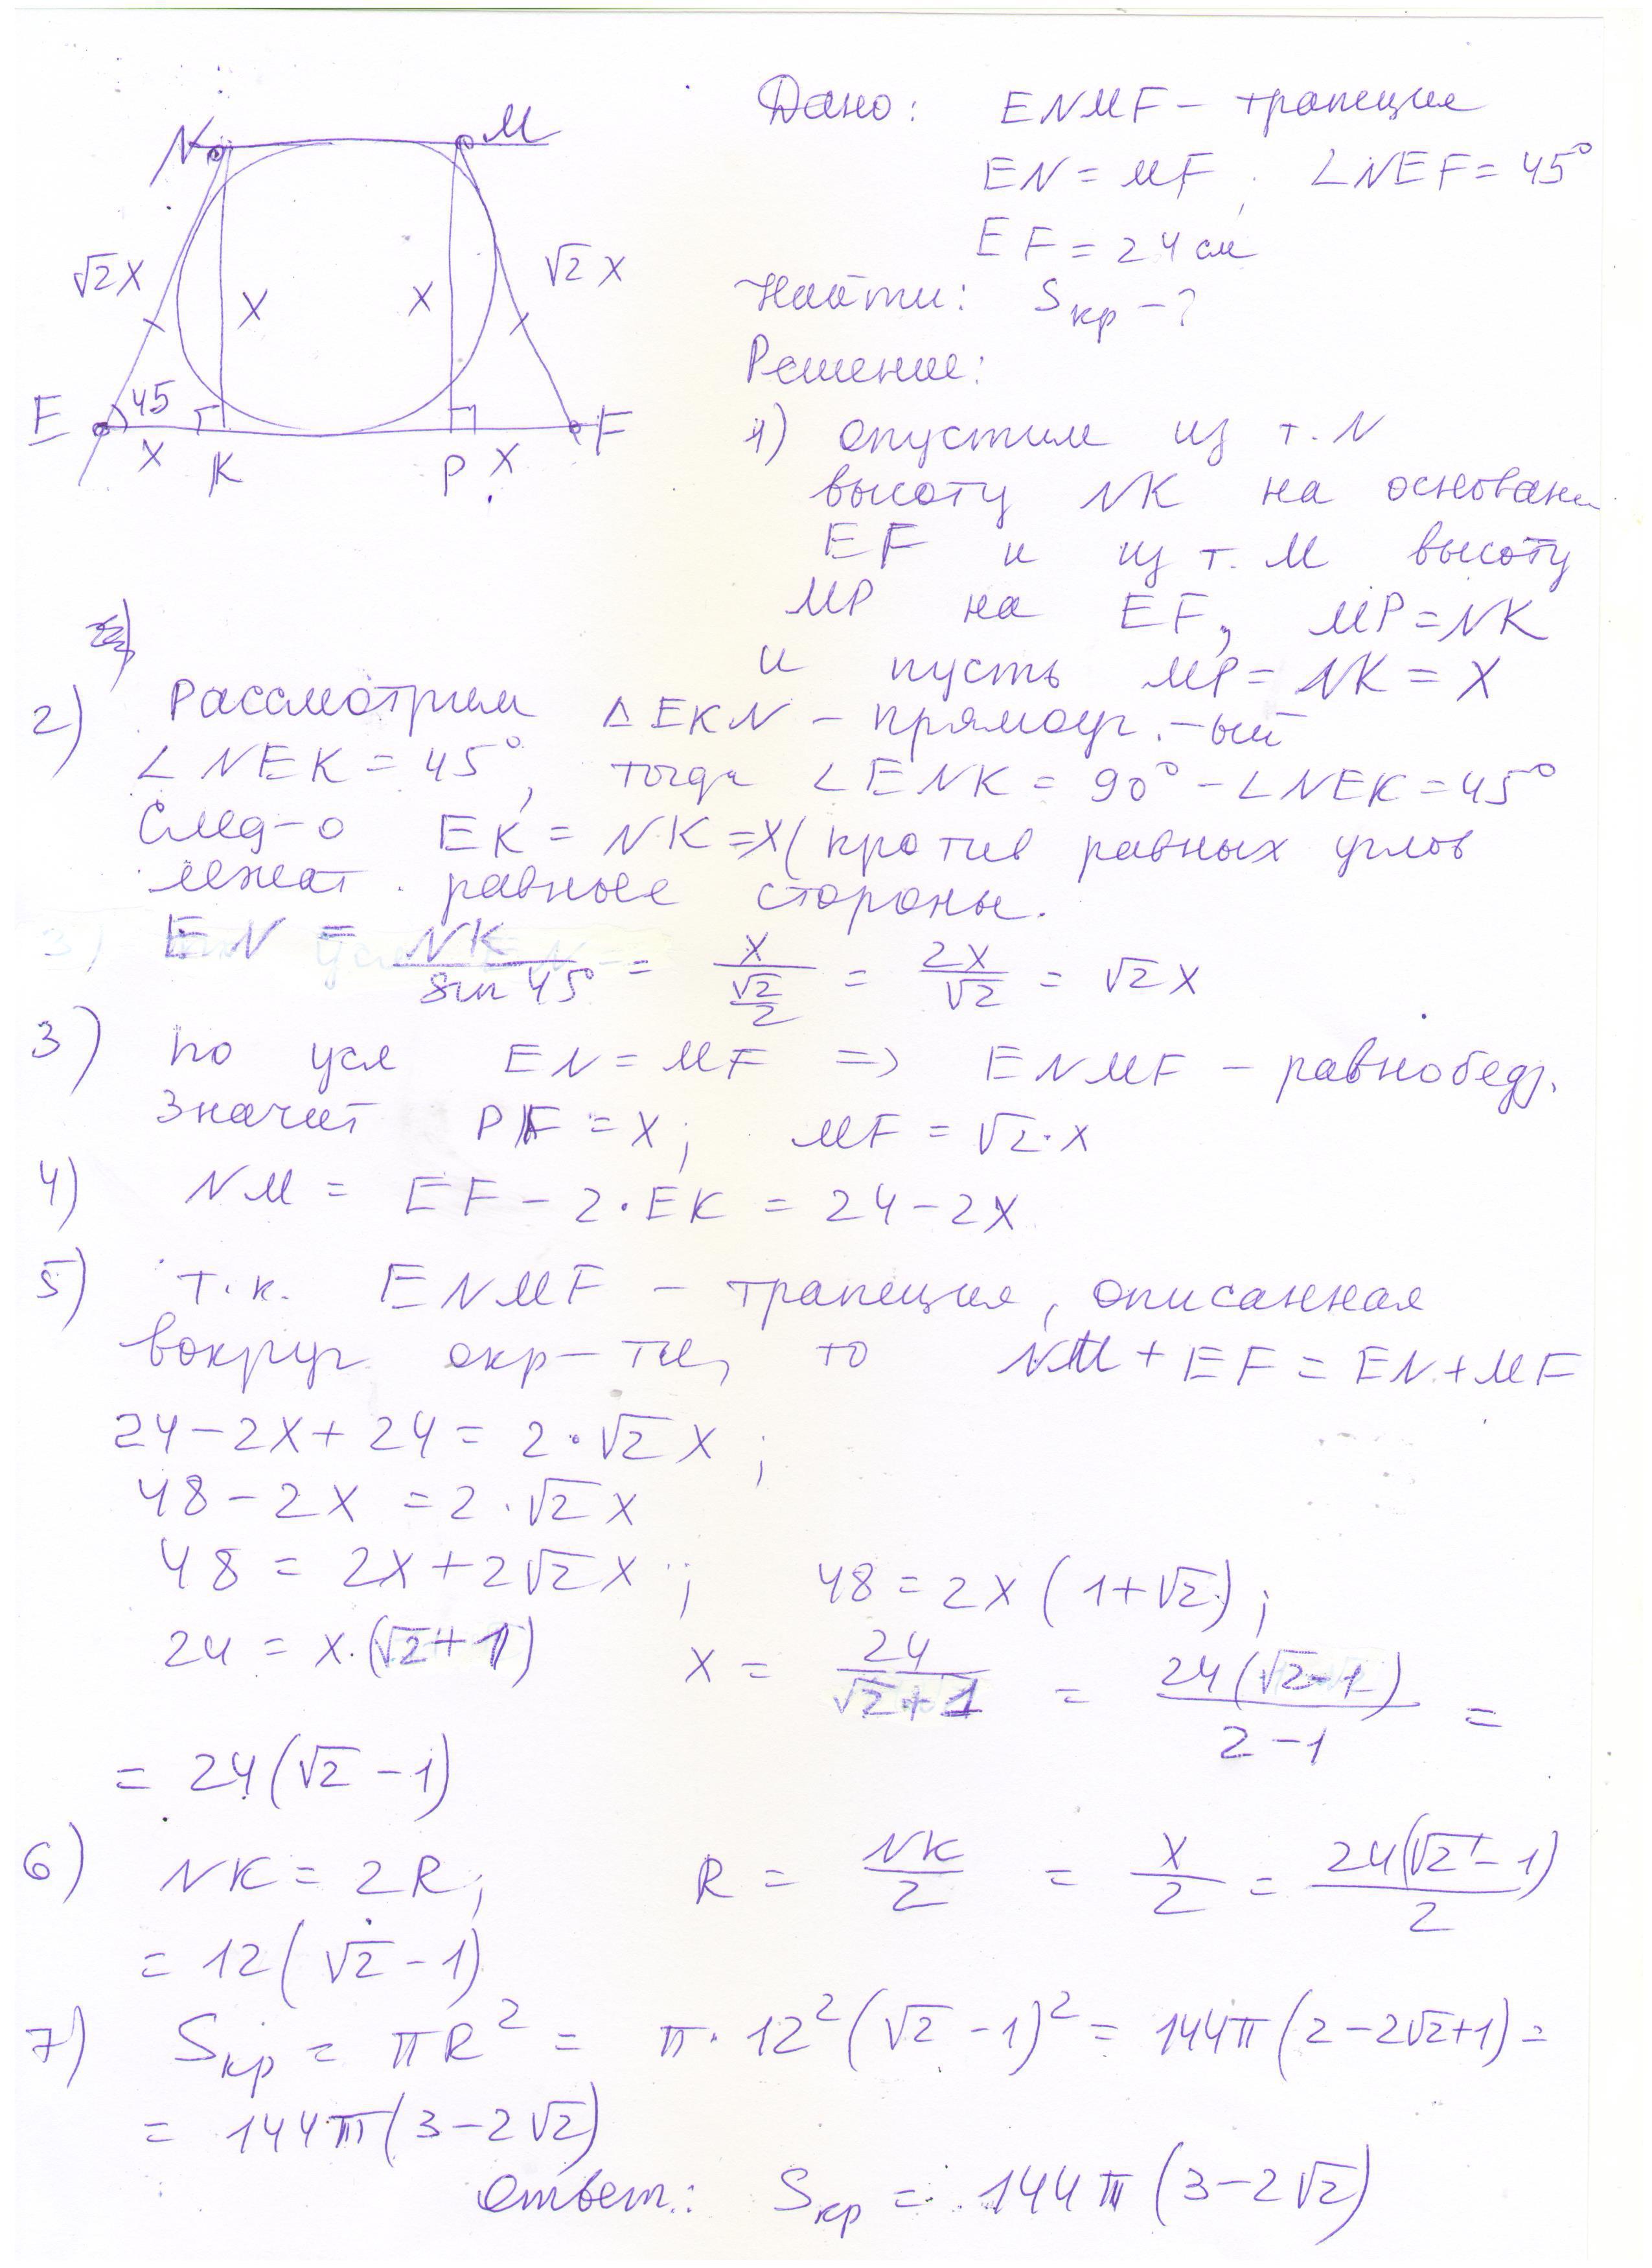 N
M
√2 X
X
X
√2 X
E
45
F
X
K
P
X
Дано: ENMF – трапеция
EN = MF, ∠NEF = 45°
EF = 24 см
Найти: Sкр – ?
Решение:
1) опустим из т. N
высоту NK на основани
EF и из т. M высоту
MP на EF, MP = NK
и пусть MP = NK = X
2) Рассмотрим ΔEKN – прямоуг.-ый
∠NEK = 45°, тогда ∠ENK = 90° – ∠NEK = 45°
След-о EK = NK = X (против равных углов
лежат равные стороны.
EN = NK / sin 45° = X / (√2/2) = 2X / √2 = √2 X
3) по усл EN = MF => ENMF – равнобедр.
Значит PF = X; MF = √2 · X
4) NM = EF – 2 · EK = 24 – 2X
5) т.к. ENMF – трапеция, описанная
вокруг окр-ти, то NM + EF = EN + MF
24 – 2X + 24 = 2 · √2 X;
48 – 2X = 2 · √2 X
48 = 2X + 2√2 X; 48 = 2X (1 + √2);
24 = X · (√2 + 1) X = 24 / (√2 + 1) = 24 (√2 – 1) / (2 – 1) =
= 24 (√2 – 1)
6) NK = 2R; R = NK / 2 = X / 2 = 24 (√2 – 1) / 2
= 12 (√2 – 1)
7) Sкр = πR² = π · 12² (√2 – 1)² = 144π (2 – 2√2 + 1) =
= 144π (3 – 2√2)
Ответ: Sкр = 144π (3 – 2√2)